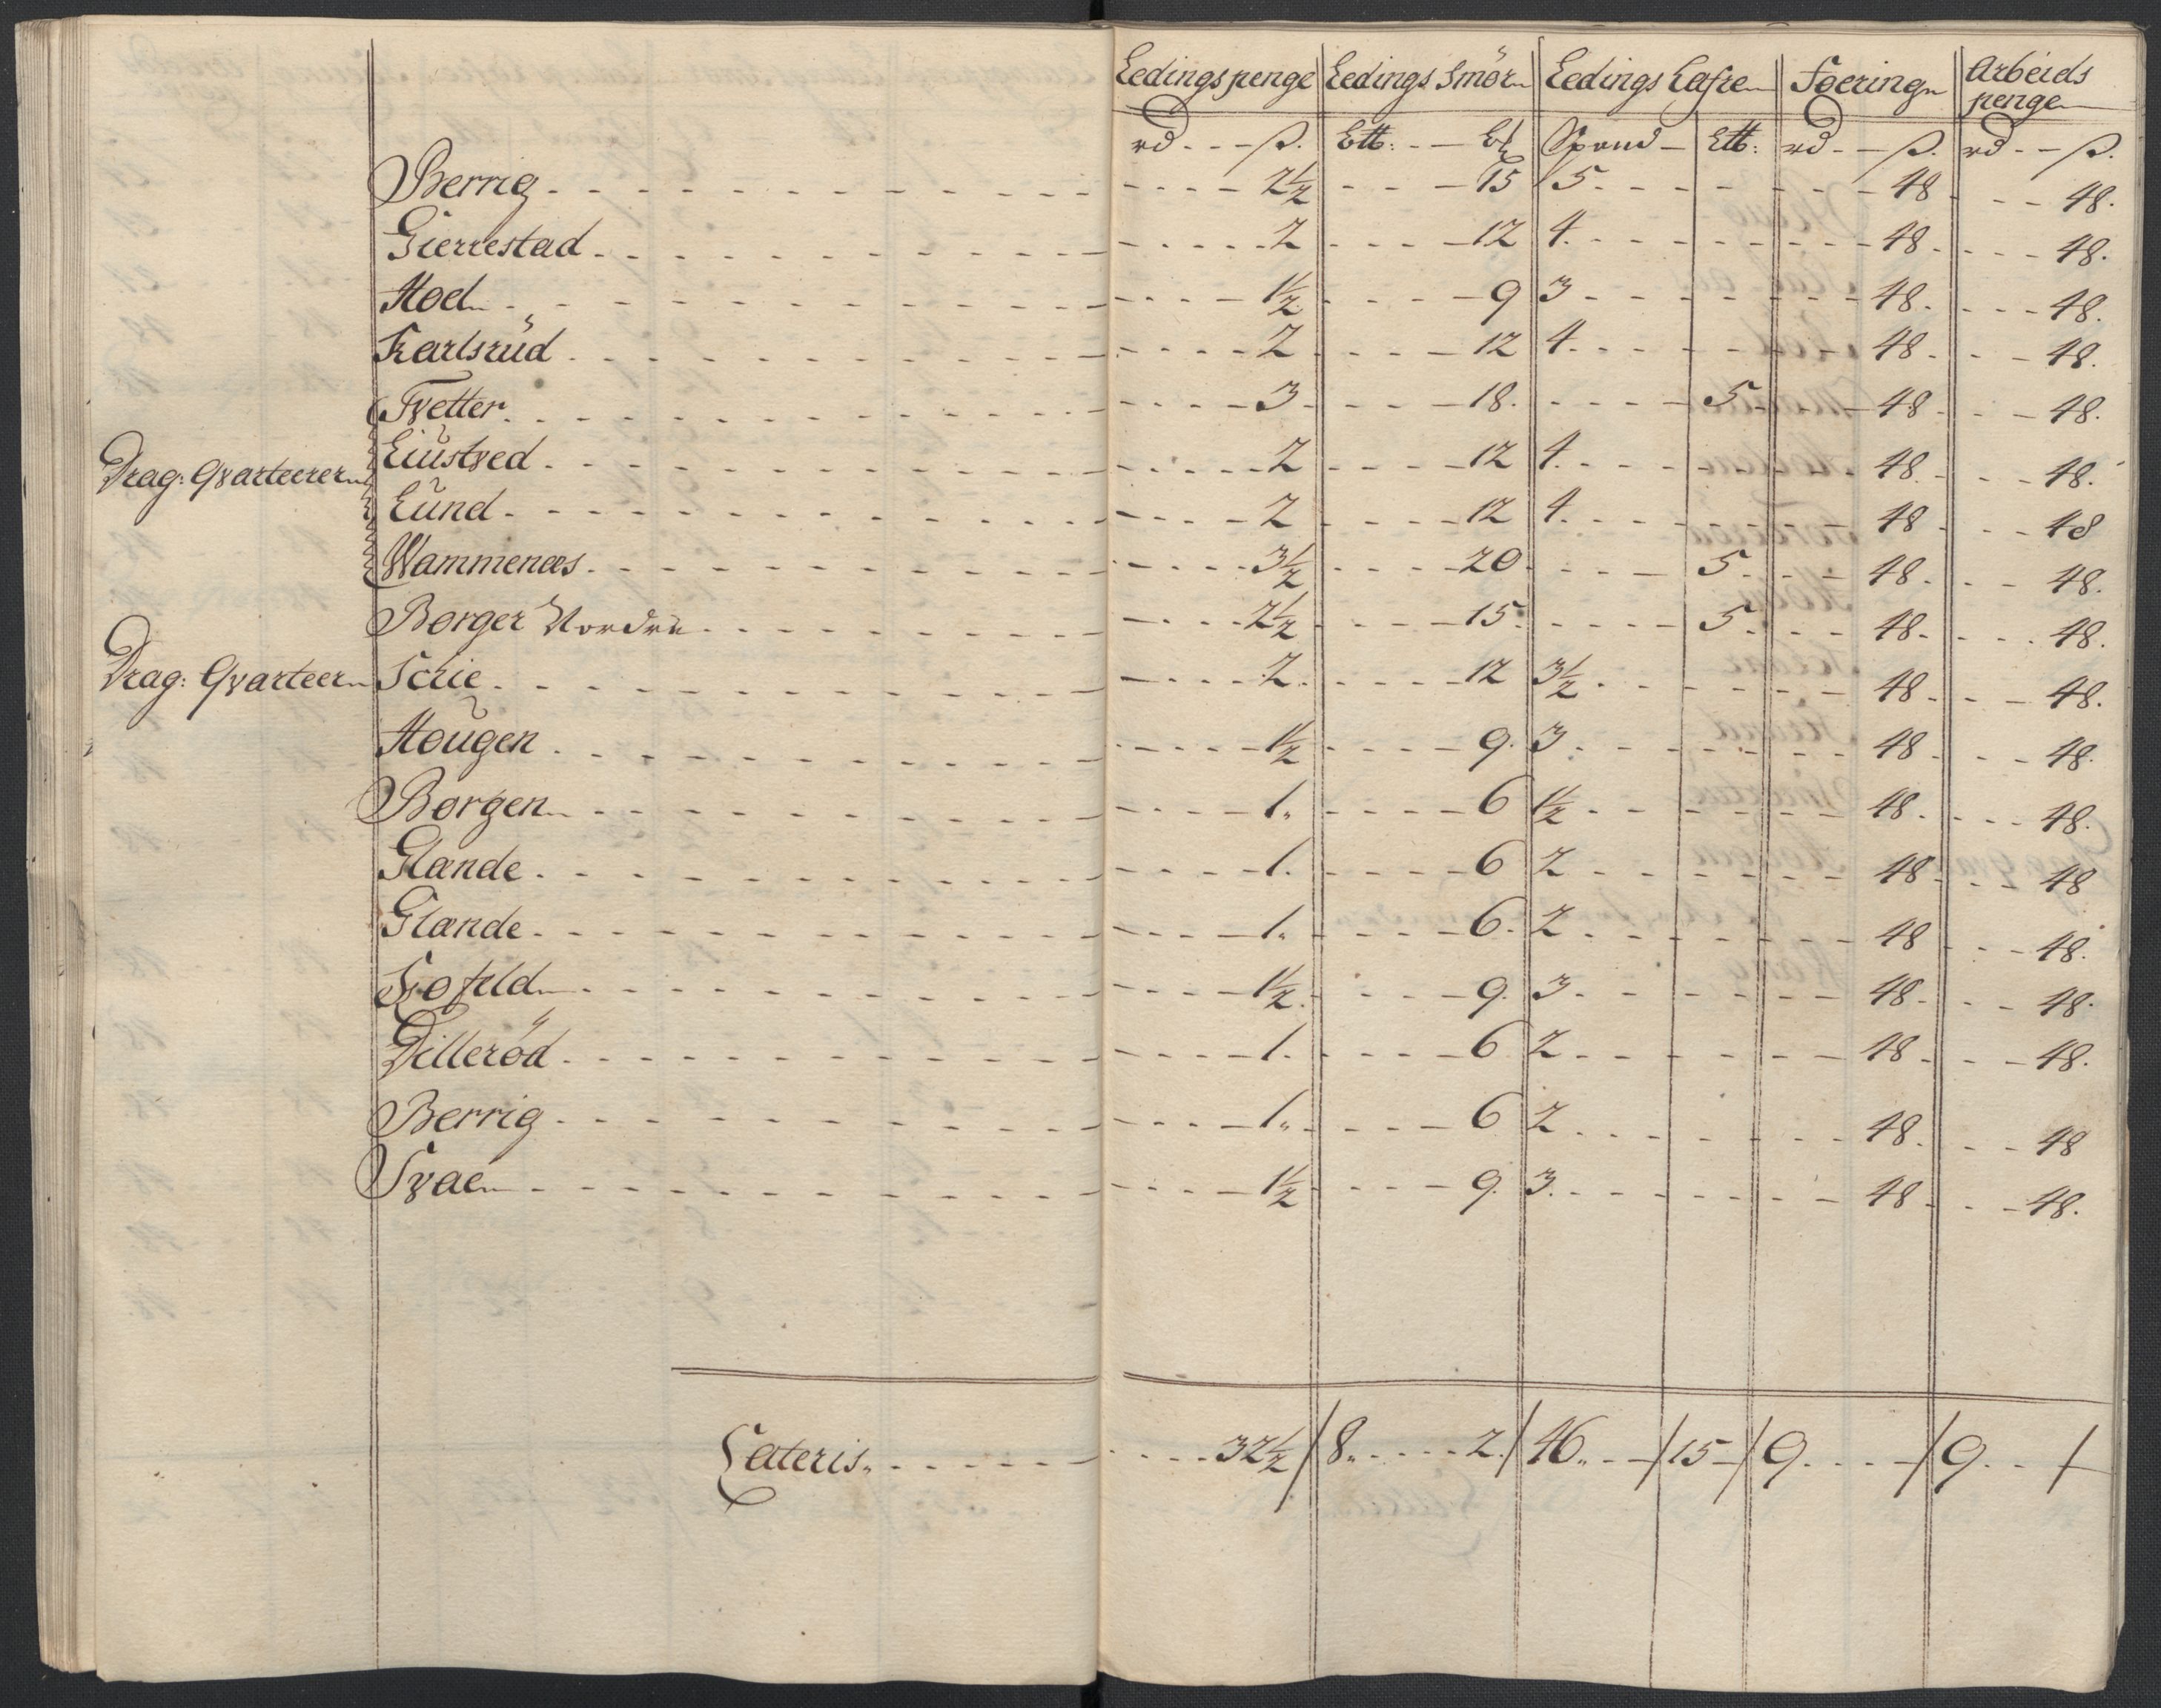 Ledingspenge Ledings Smör Ledings Hafre Foering Arbeids penge
rd ß. Spand rd ß. rd ß.
Berrig 2½ 15 5 48 48.
Gierrestad 2 12 4 48 48.
Hoel 1½ 9 3 48 48.
Karlsrud 2 12 4 48 48.
Tvetter 3 18. 5 48 48.
Drag: Qvarteerer Liustved 2 12 4 48 48.
Lund 2 12 4 48 48
Wammenæs 3½ 20 5 48 48.
Borger Nordre 2½ 15 5 48 48.
Drag: Qvarteer Scrie 2 12 3½ 48 48.
Hougen 1½ 9 3 48 48.
Borgen 1 6 1½ 48 48.
Glande 1 6 2 48 48
Glande 1 6 2 48 48.
1½ 9 3 48 48.
Dillerød 1 6 2 48 48.
Berrig 1 6 2 48 48
Svae 1½ 9 3 48 48.
Lateris 32½ / 8 2 / 46 / 15 / 9 / 9 /